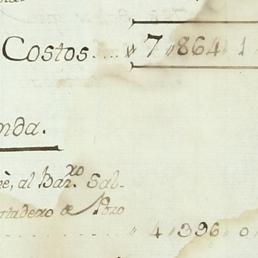 Costos.... " 7 " 864 " 1
nda.
nè, al Bar.xo Sal-
rtadero de Pozo
" 4 " 396 " 0